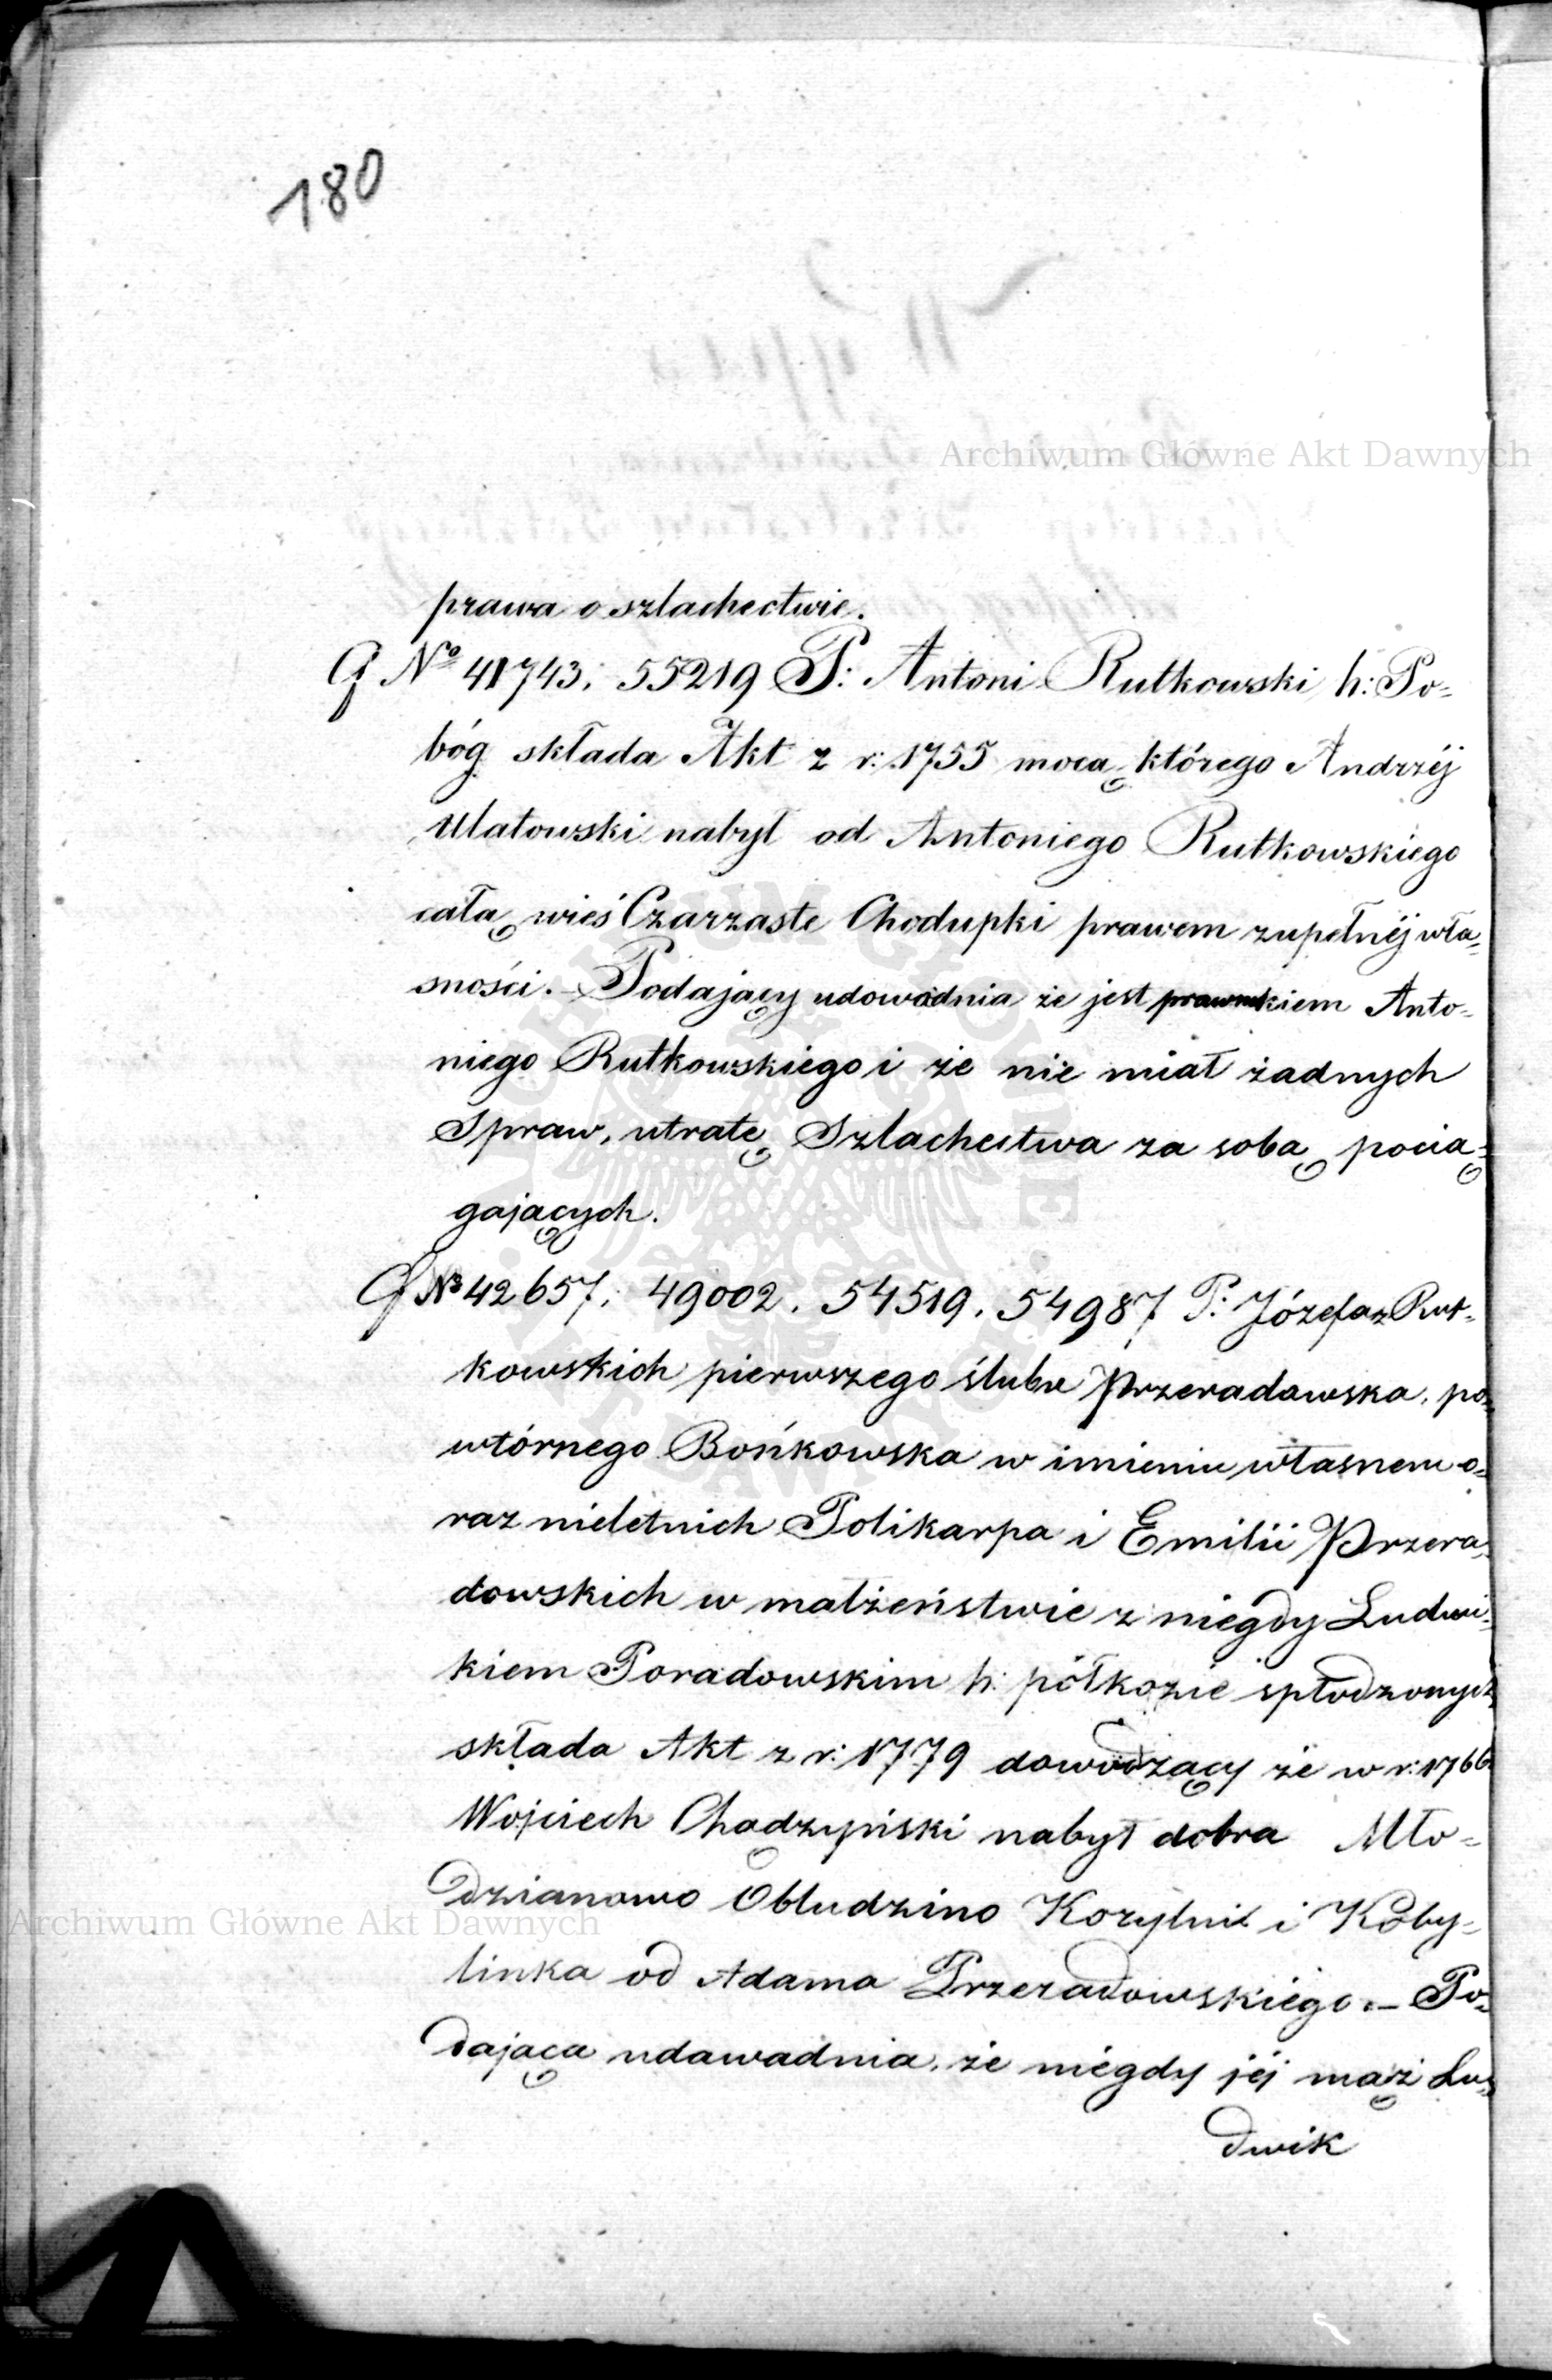 180
Archiwum Główne Akt Dawnych
prawa o szlachectwie.
G No 41743; 55219 P: Antoni Rutkowski h: Po=
bóg składa Akt z r: 1755 mocą którego Andrzéj
Ulatowski nabył od Antoniego Rutkowskiego
całą wieś Czarzaste Chodupki prawem zupełnéj wła=
sności. – Podający udowodnia że jest prawnukiem Anto=
niego Rutkowskiego i że nie miał żadnych
Spraw, utratę Szlachectwa za sobą pocią=
gających.
G No 42657; 49002. 54519. 54987 P: Józefa z Rut=
kowskich pierwszego ślubu Przeradowska, po=
wtórnego Bońkowska w imieniu własnem o=
raz nieletnich Polikarpa i Emilii Przera=
dowskich w małżeństwie z niegdy Ludwi=
kiem Poradowskim h: półkozic spłodzonych
składa Akt z r: 1779 dowodzący że w r: 1766
Wojciech Chądzyński nabył dobra Mło=
dzianowo Obludzino Korytnik i Koby=
Archiwum Główne Akt Dawnych
linka od Adama Przeradowskiego. – Po=
dająca udawadnia, że niegdy jéj mąż Lu=
dwik